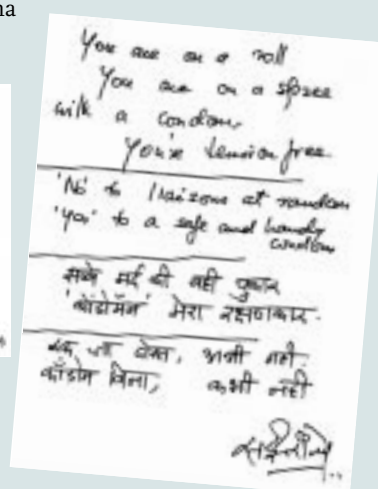 na
You are on a roll
You are on a spree
with a condom,
You're tension free.
'No' to liaisons at random
'Yes' to a safe and handy
condom
सच्चे मर्द की यही पुकार
'कोंडोमॅन' मेरा रक्षणकार.
दोस्त, अभी नही.
काँडोम बिना, कभी नही